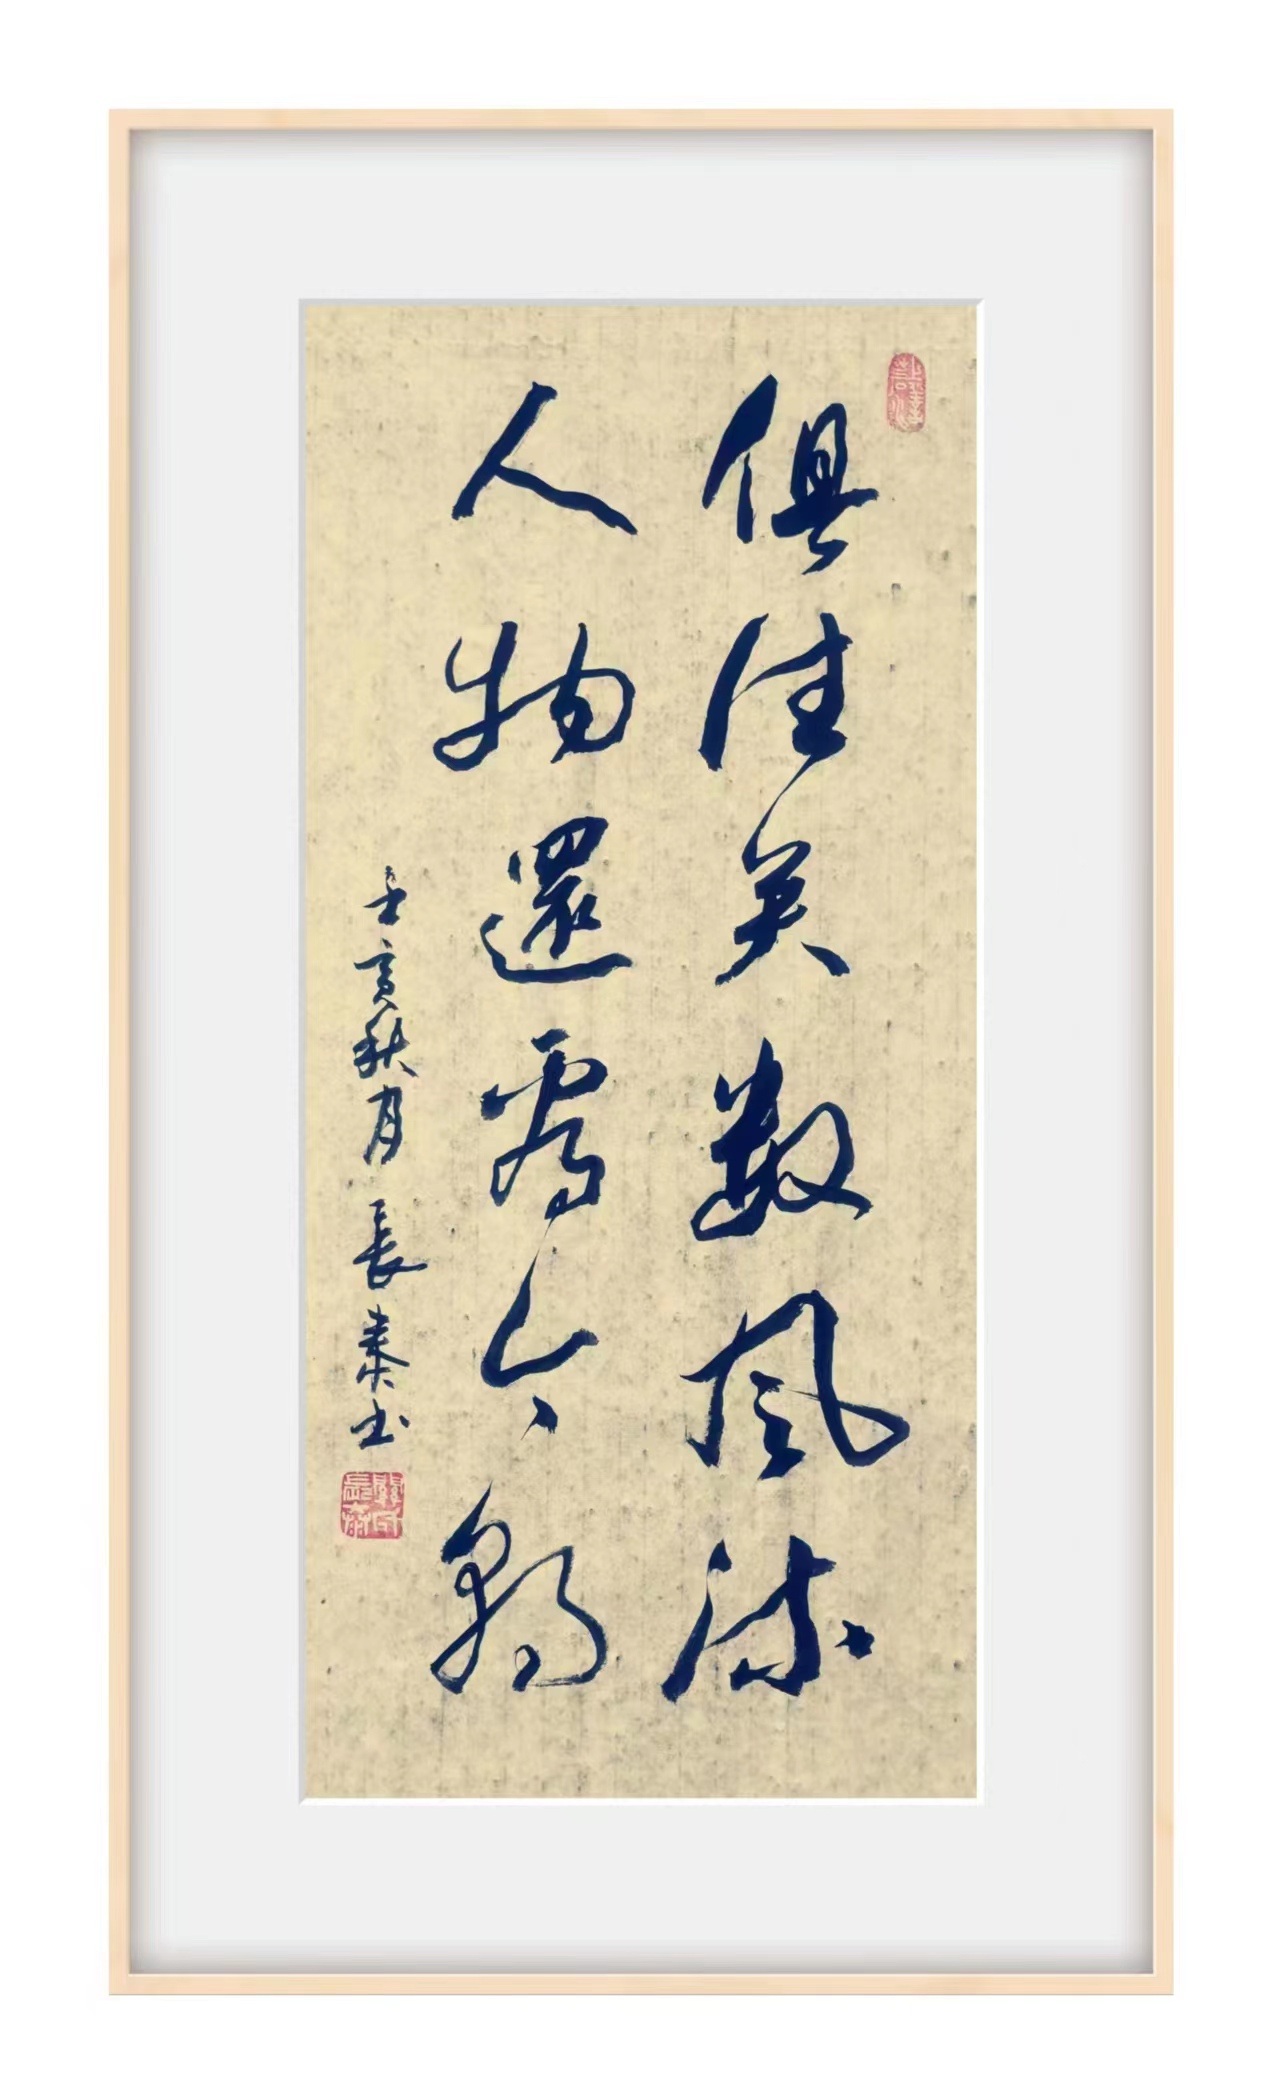 俱往矣数風流
人物還看今朝
壬寅秋月長泰书